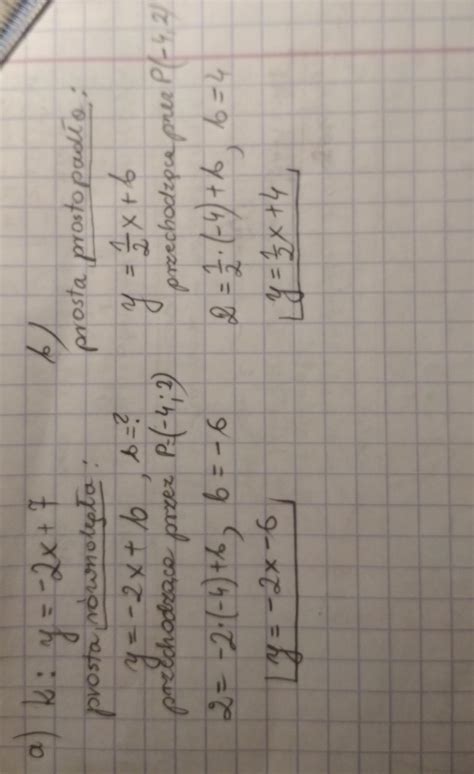 a) k: y = -2x + 7
prosta równoległa:
y = -2x + b, b = ?
przechodząca przez P=(-4; 2)
2 = -2·(-4)+b, b = -6
y = -2x - 6
b)
prosta prostopadła:
y = 1/2 x + b
przechodząca przez P(-4, 2)
2 = 1/2·(-4)+b, b = 4
y = 1/2 x + 4